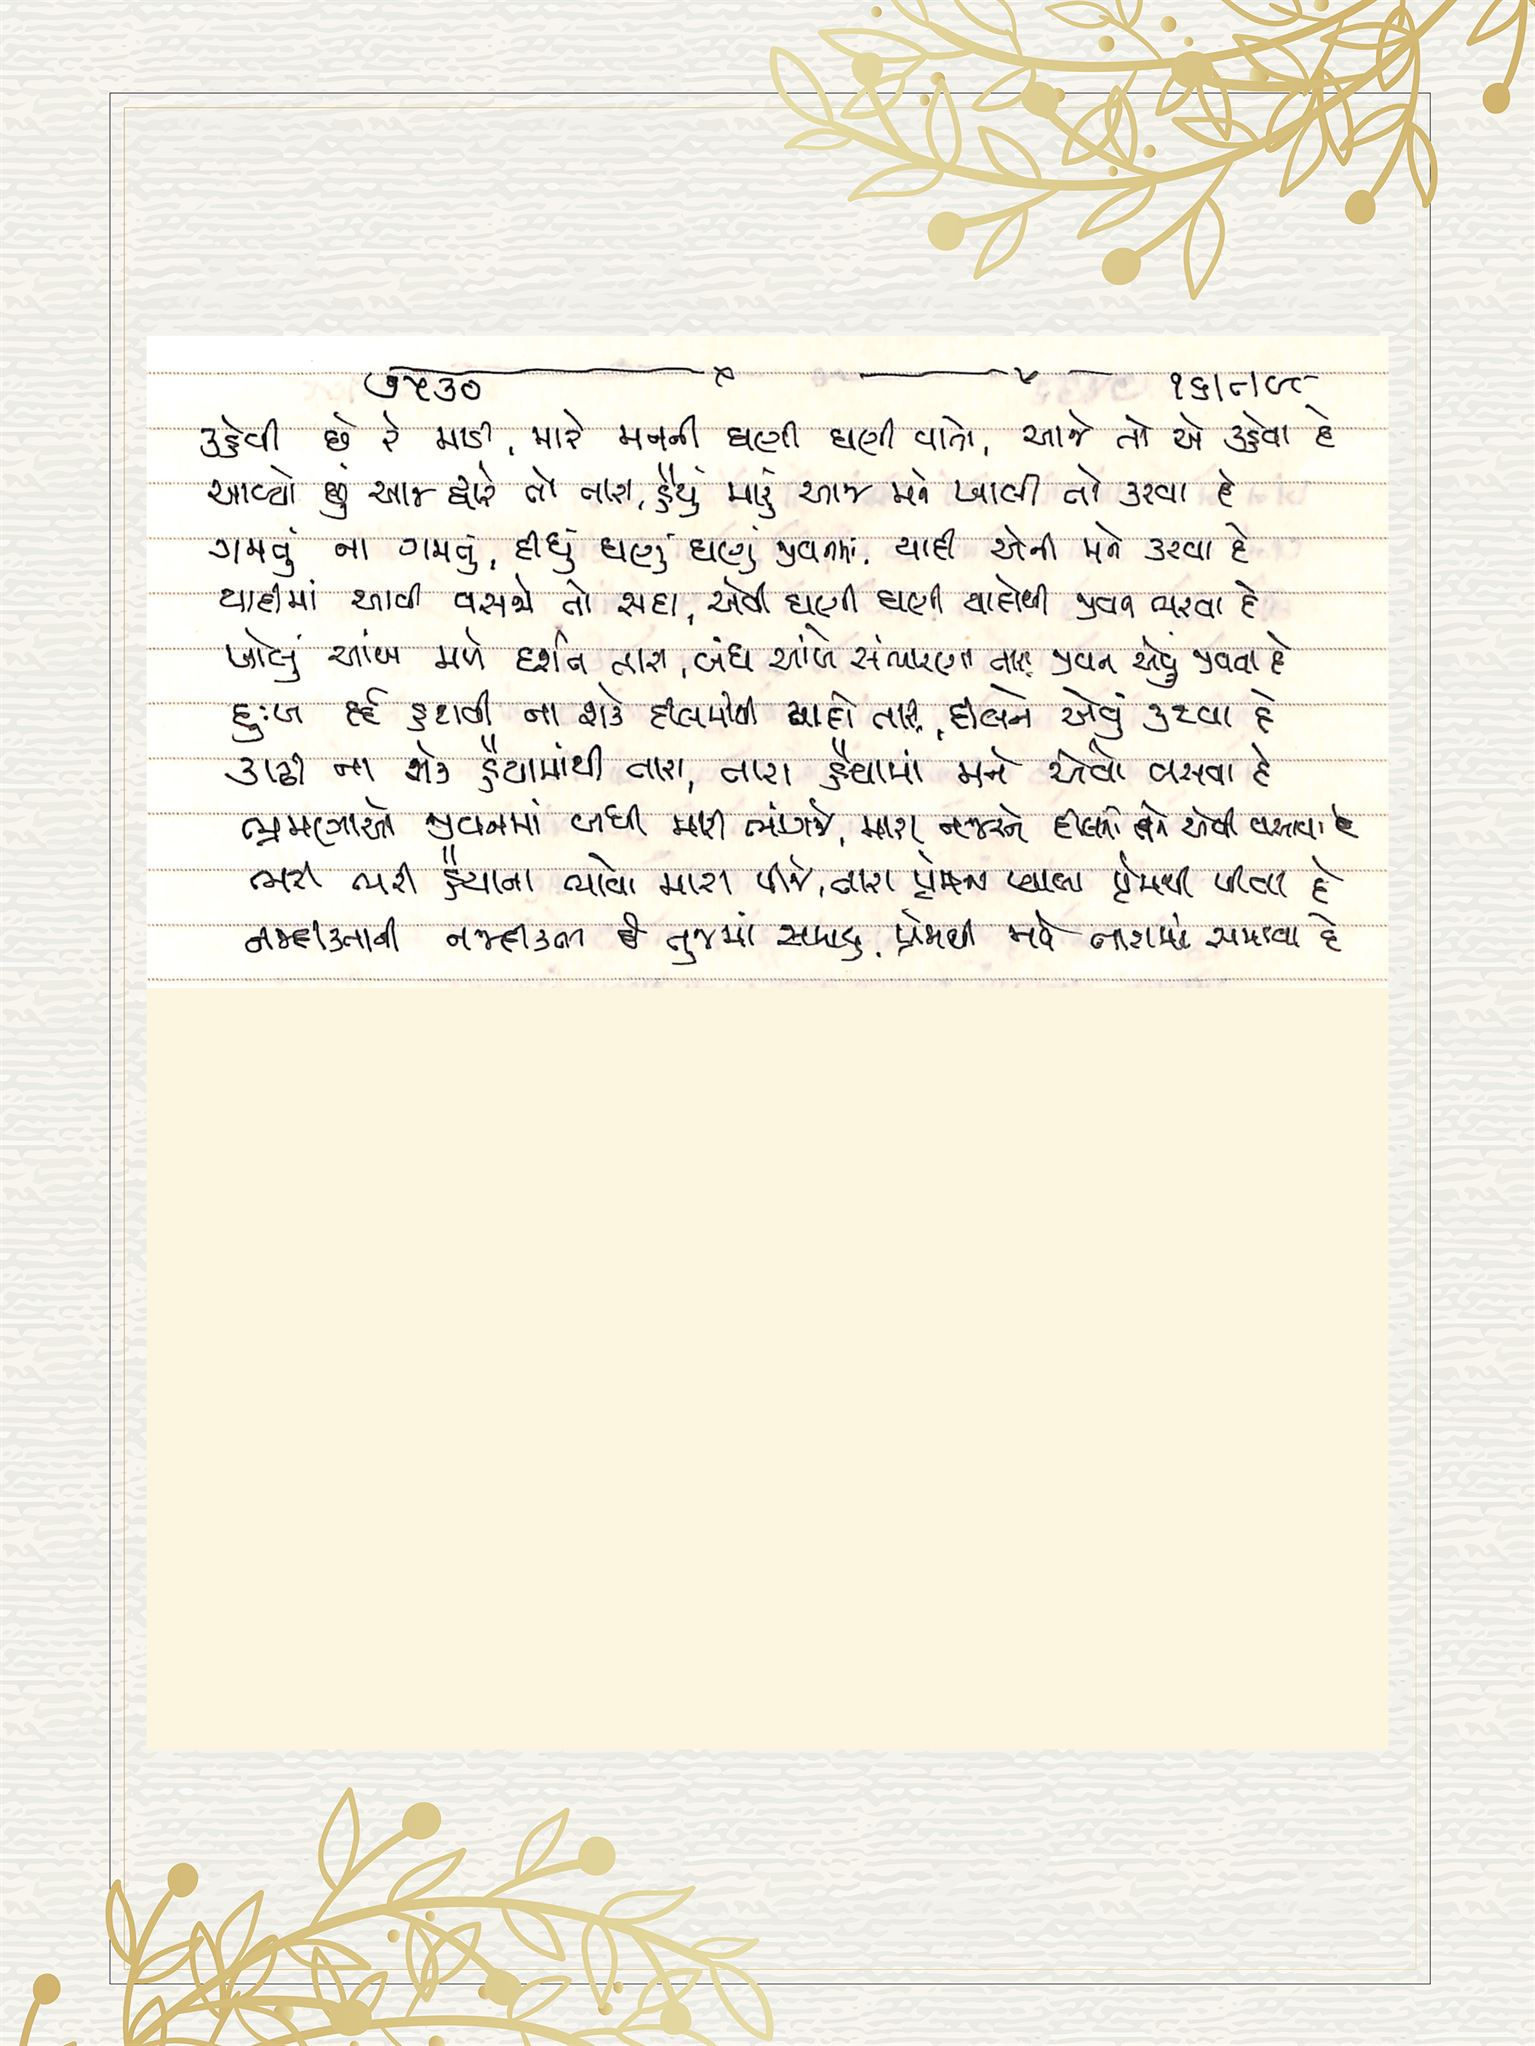 ૭૫૩૦ ૧૬/૮/૯૮
કહેવી છે રે માડી, મારે મનની ઘણી ઘણી વાતો, આજે તો એ કહેવા દે
આવ્યો છું આજ દ્વારે તો તારા, હૈયું મારું આજ મને ખાલી તો કરવા દે
ગમતું ના ગમતું, દીધું ઘણું ઘણું જીવનમાં, યાદી એની મને કરવા દે
યાદીમાં આવી વસજે તો સદા, એવી ઘણી ઘણી યાદોથી જીવન ભરવા દે
ખોલું આંખ મળે દર્શન તારા, બંધ આંખે સંભારણા તારા જીવન એવું જીવવા દે
દુઃખ દર્દ હટાવી ના શકે દીલમાંથી યાદી તારી, દીલને એવું કરવા દે
કાઢી ના શકે હૈયામાંથી તારા, તારા હૈયામાં મને એવો વસવા દે
ભ્રમણાઓ જીવનમાં બધી મારી ભાંગજે, મારા નજરને દીલમાં તને એવી વસાવવા દે
ભરી ભરી હૈયાના ભાવો મારા પીજે, તારા પ્રેમના પ્યાલા પ્રેમથી પીવા દે
નજદીકતાની નજદીકતા દે તુજમાં સમાવું, પ્રેમથી મને તારામાં સમાવા દે